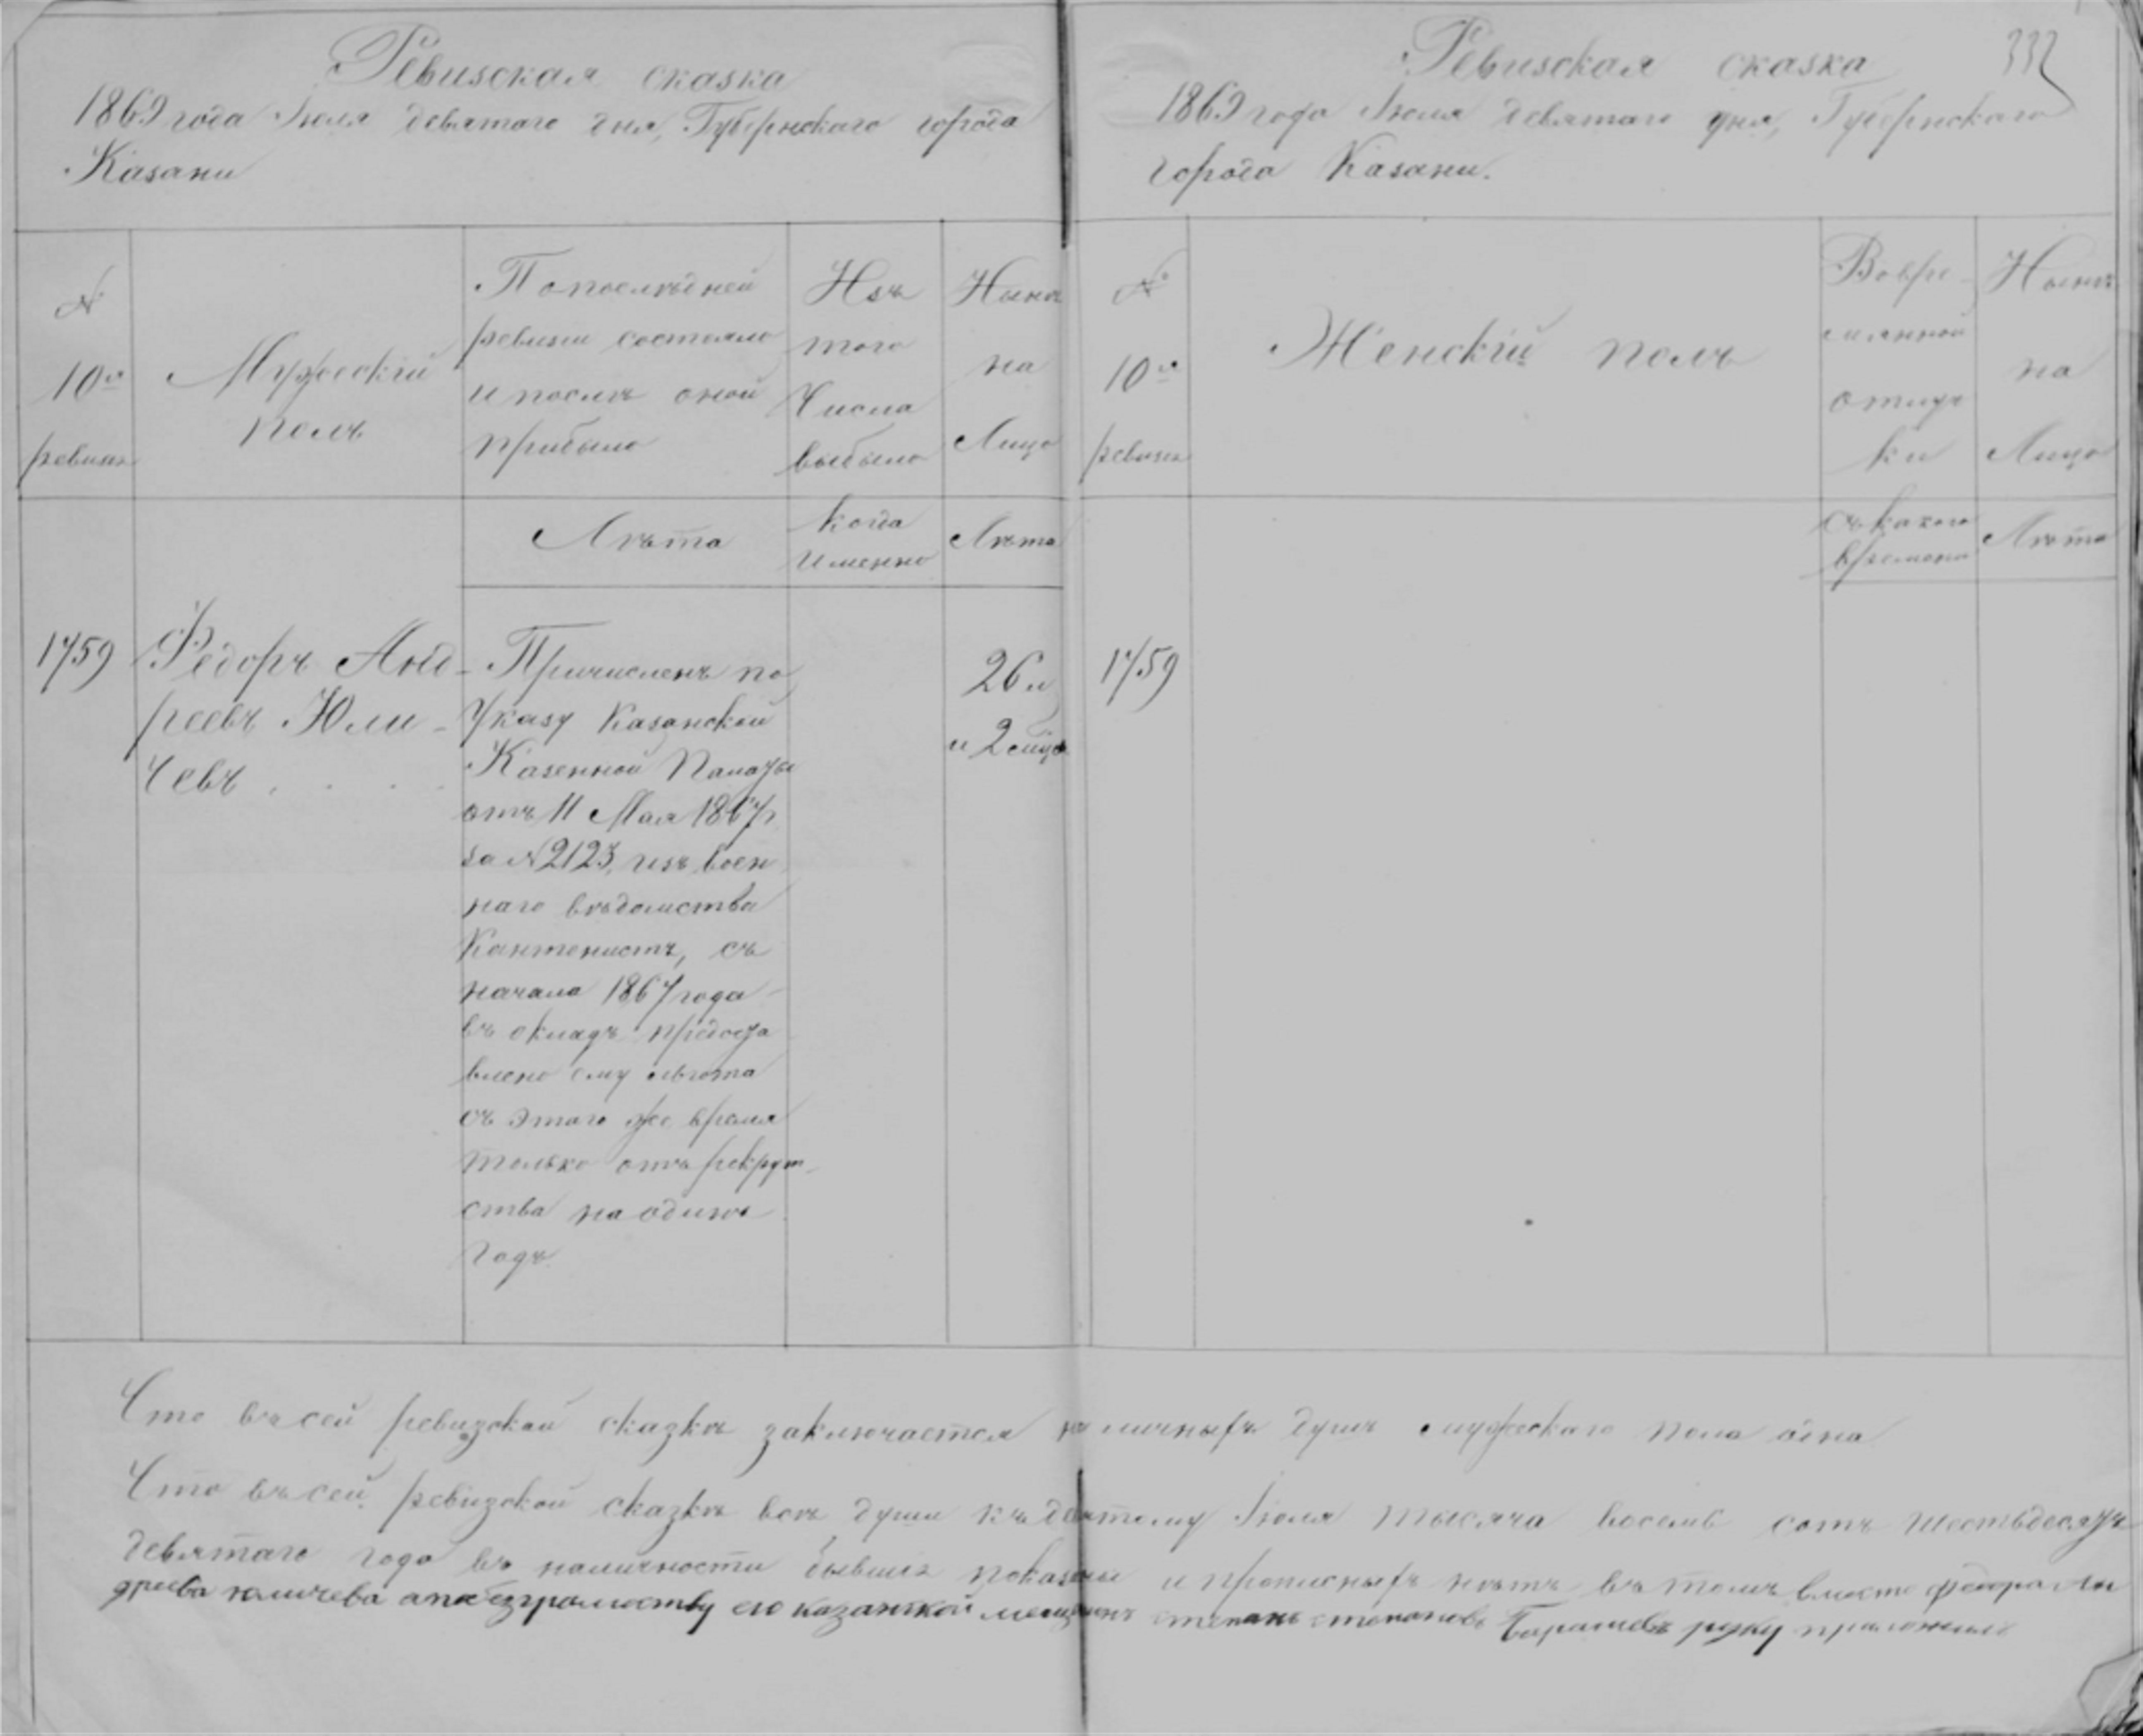 Ревизская сказка
1869 года Июля девятаго дня, Губернскаго города
Казани
№
10й
ревизіи
Мужескій
полъ
По послѣдней
ревизіи состояло
и послѣ оной
прибыло
Изъ
того
числа
выбыло
Нынѣ
на
Лицо
Лѣта
когда
именно
Лѣта
1759
Федоръ Анд-
реевъ Юли-
чевъ
Причисленъ по
Указу Казанской
Казенной Палаты
отъ 11 Мая 1867 г.
за №2123, изъ воен
наго вѣдомства
Кантонистъ, съ
начала 1867 года
въ окладъ предоста
влено ему льгота
съ этаго же время
только отъ рекрут-
ства на одинъ
годъ.
26 и
и 2 сице
333
Ревизская сказка
1869 года Июля девятаго дня, Губернскаго
города Казани.
№
10й
ревизіи
Женскій полъ
Во вре-
менной
отлуч
ки
Нынѣ
на
Лицо
съ какого
времени
Лѣта
1759
Что въ сей ревизской сказкѣ заключается наличныхъ душъ мужескаго пола одна
Что въ сей ревизской сказкѣ всѣ души къ девятому Июля тысяча восемь сотъ шестьдесятъ
девятаго года въ наличности бывшіе показаны и прописныхъ нѣтъ въ томъ вместо федора Ан
дреева юличева а по безграмотству его казанской мещанинъ степанъ степановъ руку приложилъ